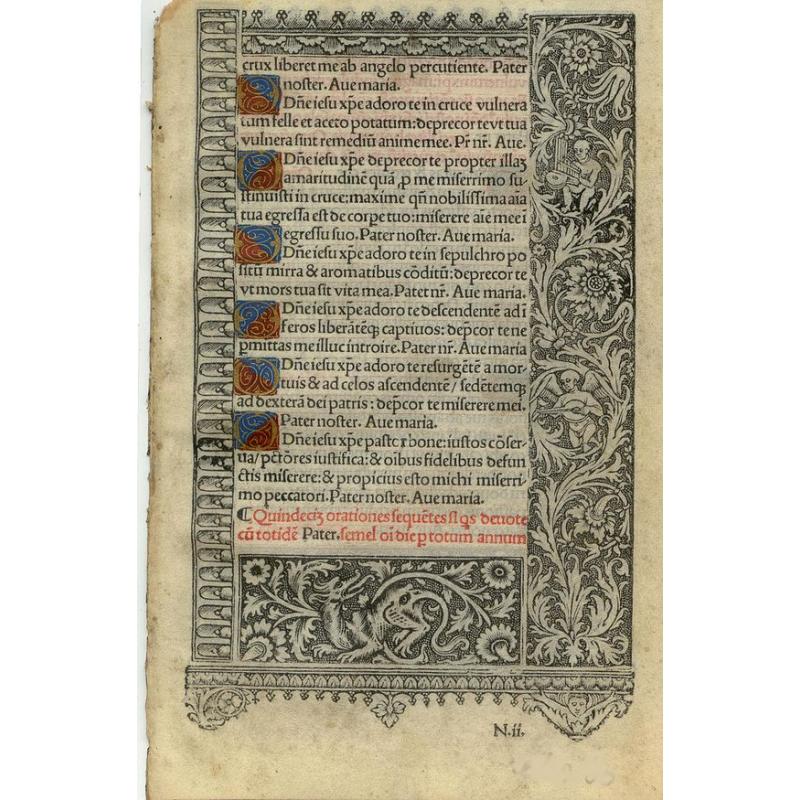 crux liberet me ab angelo percutiente. Pater
noster. Aue maria.
Dñe iesu xp̃e adoro te in cruce vulnera
tum felle et aceto potatum: deprecor te vt tua
vulnera sint remediũ anime mee. Pr̃ nr̃. Aue.
Dñe iesu xp̃e deprecor te propter illaʒ
amaritudinẽ quã ꝓ me miserrimo su
stinuisti in cruce: maxime qñ nobilissima aĩa
tua egressa est de corpe tuo: miserere aĩe mee ĩ
egressu suo. Pater noster. Aue maria.
Dñe iesu xp̃e adoro te in sepulchro po
sitũ mirra & aromatibus cõditũ: deprecor te
vt mors tua sit vita mea. Pater nr̃. Aue maria.
Dñe iesu xp̃e adoro te descendentẽ ad ĩ
feros liberãtẽqꝫ captiuos: dep̃cor te ne
ꝑmittas me illuc introire. Pater nr̃. Aue maria
Dñe iesu xp̃e adoro te resurgẽtẽ a mor
tuis & ad celos ascendentẽ / sedẽtemqꝫ
ad dexterã dei patris: dep̃cor te miserere mei.
Pater noster. Aue maria.
Dñe iesu xp̃e pastor bone: iustos cõser
ua / pctõres iustifica: & oĩbus fidelibus defun
ctis miserere: & propicius esto michi miserri
mo peccatori. Pater noster. Aue maria.
¶ Quindeciʒ orationes sequẽtes si qs deuote
cũ totidẽ Pater. semel oĩ die ꝑ totum annum
N.ii.